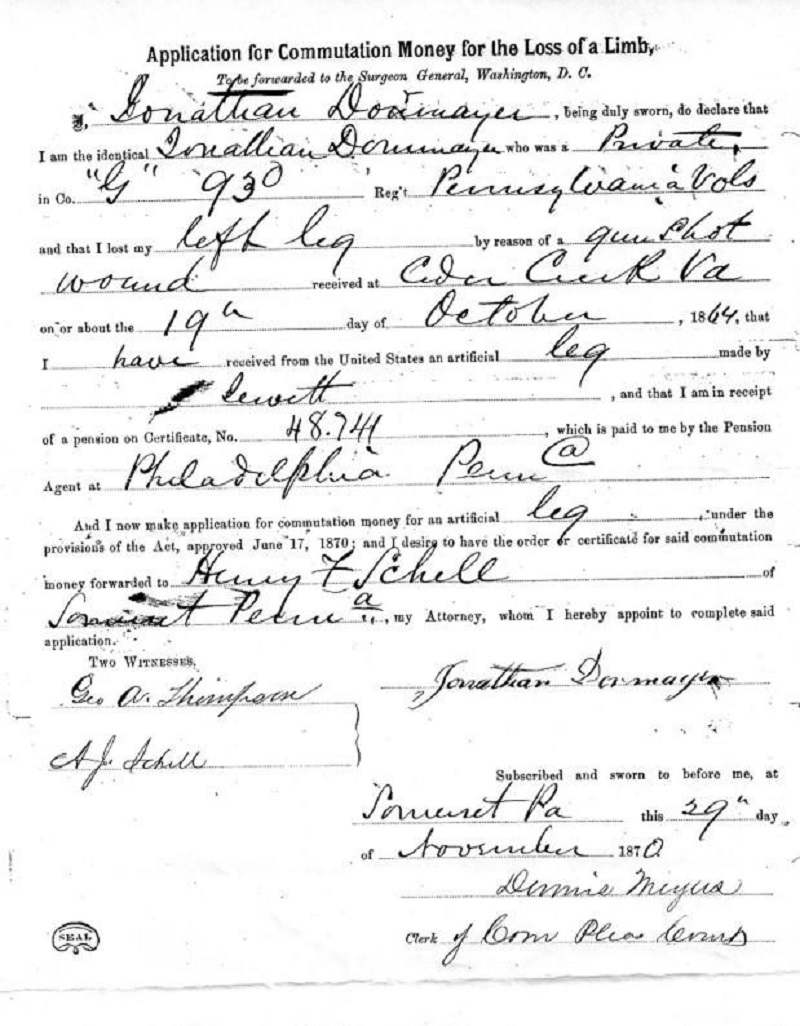 Application for Commutation Money for the Loss of a Limb,
To be forwarded to the Surgeon General, Washington, D. C.
I, Jonathan Dormayer, being duly sworn, do declare that
I am the identical Jonathan Dormayer who was a Private,
in Co. "G" 93d Reg't Pennsylvania Vols
and that I lost my left leg by reason of a gun shot
wound received at Cedar Creek Va
on or about the 19th day of October, 1864, that
I have received from the United States an artificial leg made by
Jewett, and that I am in receipt
of a pension on Certificate, No. 48.741, which is paid to me by the Pension
Agent at Philadelphia Penna
And I now make application for commutation money for an artificial leg, under the
provisions of the Act, approved June 17, 1870; and I desire to have the order or certificate for said commutation
money forwarded to Henry F Schell of
Somerset Penna, my Attorney, whom I hereby appoint to complete said
application.
TWO WITNESSES,
Geo A. Thompson
Jonathan Dormayer
A. J. Schell
Subscribed and sworn to before me, at
Somerset Pa this 29th day
of November 1870
Dennis Meyers
SEAL
Clerk of Com Pleas Court